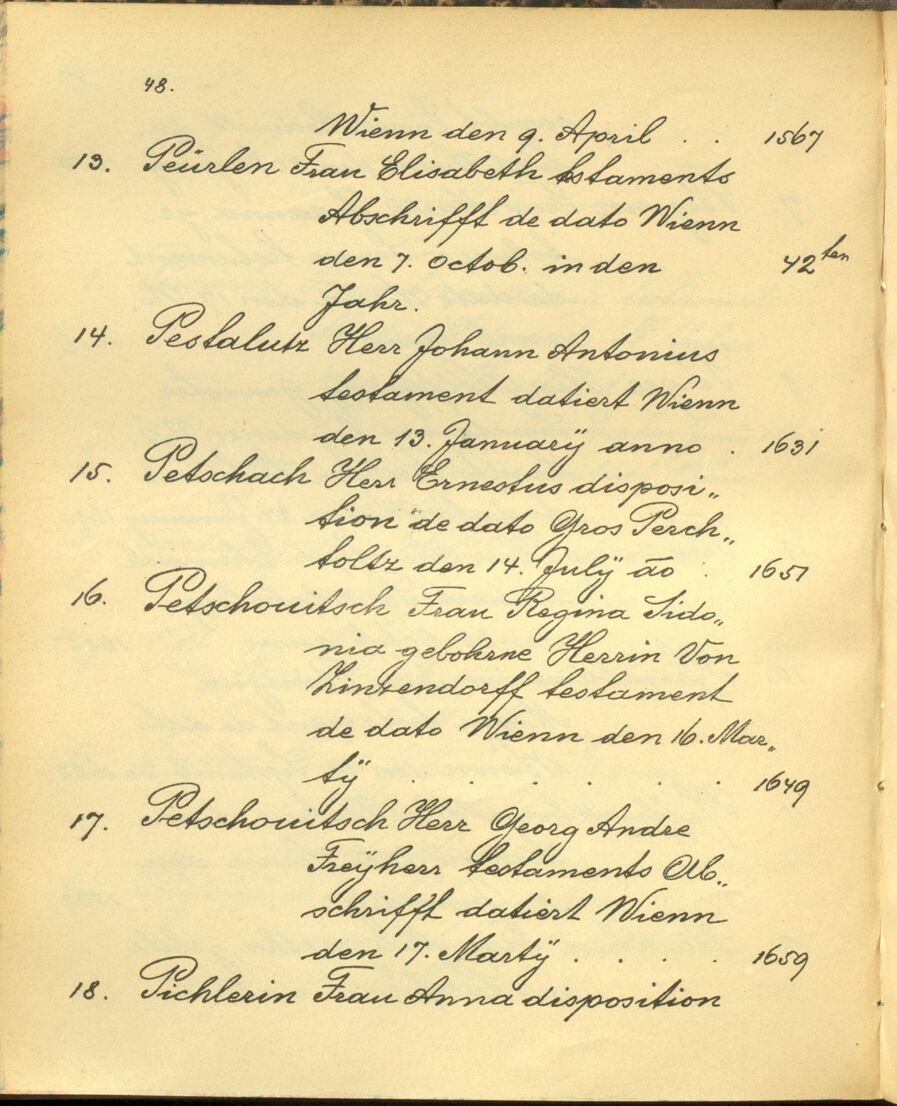 48.
Wienn den 9. April . . 1567
13. Peürlen Frau Elisabeth testaments
Abschrifft de dato Wienn
den 7. Octob. in den 42ten
Jahr.
14. Pestalutz Herr Johann Antonius
testament datiert Wienn
den 13. Januarÿ anno . 1631
15. Petschach Herr Ernestus disposi„
tion de dato Gros Perch„
toltz den 14. Julÿ āo . 1651
16. Petschouitsch Frau Regina Sido„
nia gebohrne Herrin Von
Zinzendorff testament
de dato Wienn den 16. Mar„
tÿ . . . . . . 1649
17. Petschouitsch Herr Georg Andre
Freÿherr testaments Ab„
schrifft datiert Wienn
den 17. Martÿ . . . . 1659
18. Pichlerin Frau Anna disposition